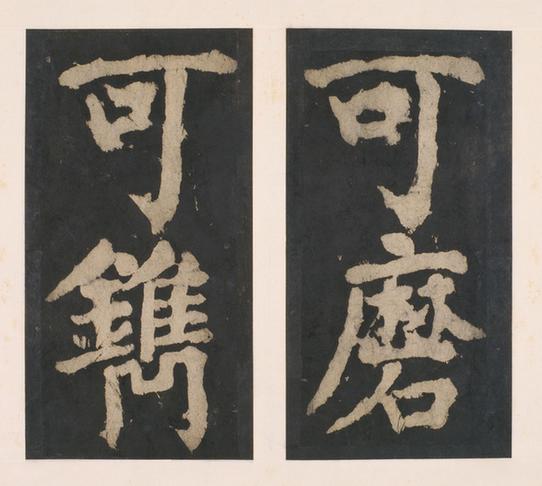 可磨
可鐫